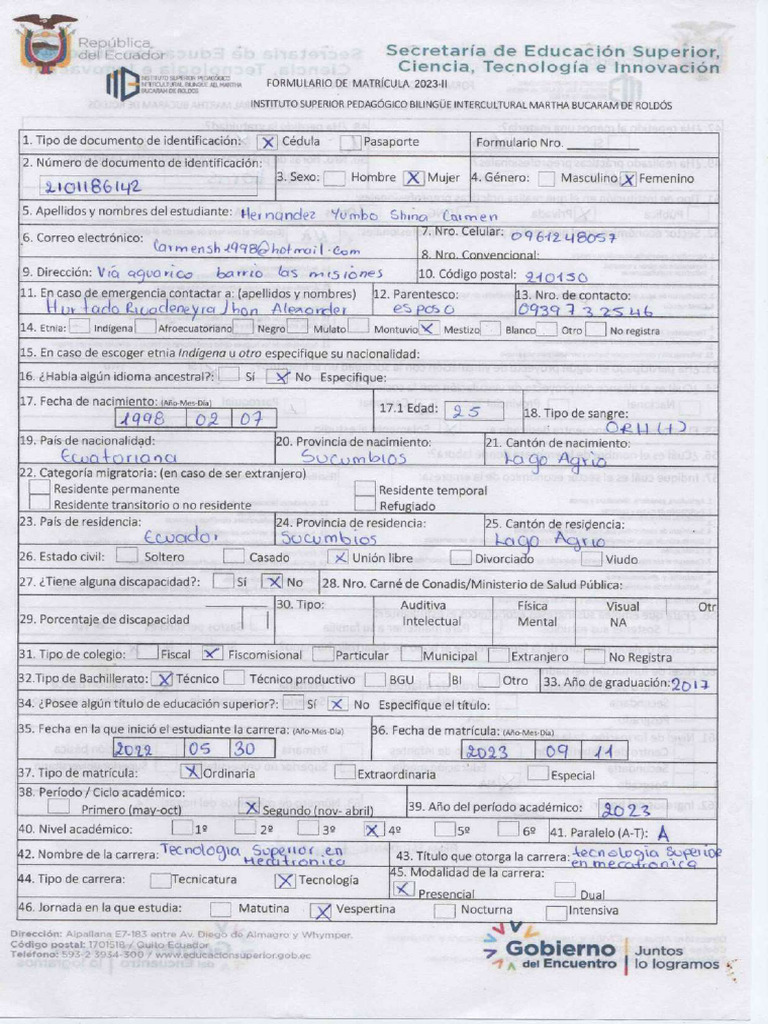 República del Ecuador
Secretaría de Educación Superior,
Ciencia, Tecnología e Innovación
INSTITUTO SUPERIOR PEDAGÓGICO
INTERCULTURAL BILINGÜE MARTHA
BUCARAM DE ROLDOS
FORMULARIO DE MATRÍCULA 2023-II
INSTITUTO SUPERIOR PEDAGÓGICO BILINGÜE INTERCULTURAL MARTHA BUCARAM DE ROLDÓS
1. Tipo de documento de identificación: X Cédula Pasaporte Formulario Nro. ________
2. Número de documento de identificación: 2101186142 3. Sexo: Hombre X Mujer 4. Género: Masculino X Femenino
5. Apellidos y nombres del estudiante: Hernandez Yumbo Shina Carmen
6. Correo electrónico: Carmensh1998@hotmail.com 7. Nro. Celular: 0961248057
8. Nro. Convencional:
9. Dirección: Vía aguarico barrio las misiones 10. Código postal: 210150
11. En caso de emergencia contactar a: (apellidos y nombres) 12. Parentesco: 13. Nro. de contacto:
Hurtado Rivadeneyra Jhon Alexander esposo 0939732546
14. Etnia: Indígena Afroecuatoriano Negro Mulato Montuvio X Mestizo Blanco Otro No registra
15. En caso de escoger etnia Indígena u otro especifique su nacionalidad:
16. ¿Habla algún idioma ancestral?: Sí X No Especifique:
17. Fecha de nacimiento: (Año-Mes-Día) 1998 02 07 17.1 Edad: 25 18. Tipo de sangre: ORH(+)
19. País de nacionalidad: 20. Provincia de nacimiento: 21. Cantón de nacimiento:
Ecuatoriana Sucumbios Lago Agrio
22. Categoría migratoria: (en caso de ser extranjero)
Residente permanente Residente temporal
Residente transitorio o no residente Refugiado
23. País de residencia: 24. Provincia de residencia: 25. Cantón de residencia:
Ecuador Sucumbios Lago Agrio
26. Estado civil: Soltero Casado X Unión libre Divorciado Viudo
27. ¿Tiene alguna discapacidad?: Sí X No 28. Nro. Carné de Conadis/Ministerio de Salud Pública:
29. Porcentaje de discapacidad 30. Tipo: Auditiva Física Visual Otr
Intelectual Mental NA
31. Tipo de colegio: Fiscal X Fiscomisional Particular Municipal Extranjero No Registra
32.Tipo de Bachillerato: X Técnico Técnico productivo BGU BI Otro 33. Año de graduación: 2017
34. ¿Posee algún título de educación superior?: Sí X No Especifique el título:
35. Fecha en la que inició el estudiante la carrera: (Año-Mes-Día) 36. Fecha de matrícula: (Año-Mes-Día)
2022 05 30 2023 09 11
37. Tipo de matrícula: X Ordinaria Extraordinaria Especial
38. Período / Ciclo académico: 39. Año del período académico: 2023
Primero (may-oct) X Segundo (nov- abril)
40. Nivel académico: 1º 2º 3º X 4º 5º 6º 41. Paralelo (A-T): A
42. Nombre de la carrera: Tecnologia Superior en Mecatronica 43. Título que otorga la carrera: tecnologia Superior en mecatronica
44. Tipo de carrera: Tecnicatura X Tecnología 45. Modalidad de la carrera:
X Presencial Dual
46. Jornada en la que estudia: Matutina X Vespertina Nocturna Intensiva
Dirección: Alpallana E7-183 entre Av. Diego de Almagro y Whymper.
Código postal: 170518 / Quito Ecuador
Teléfono: 593-2 3934-300 / www.educacionsuperior.gob.ec
Gobierno del Encuentro
Juntos lo logramos